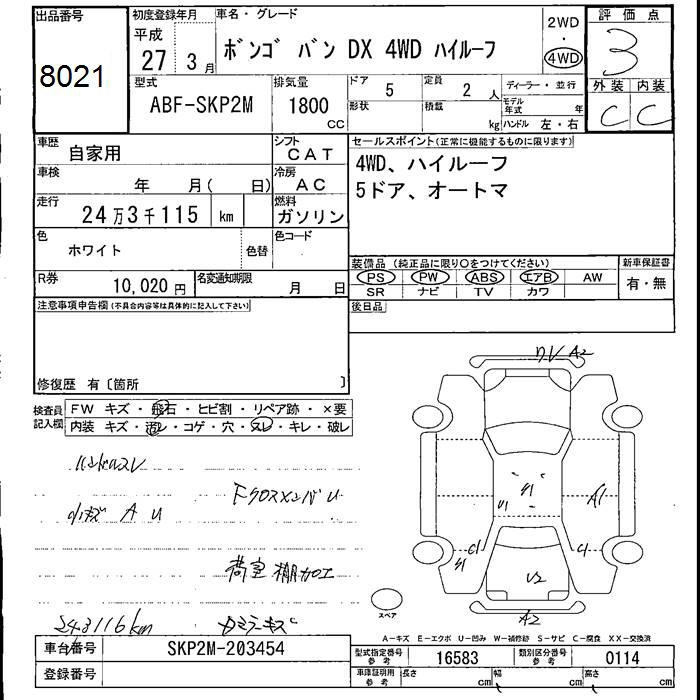 出品番号
8021
初度登録年月
平成
27 3月
車名・グレード
ボンゴ バン DX 4WD ハイルーフ
2WD
・
4WD
評価点
3
外装 内装
C C
型式
ABF-SKP2M
排気量
1800
CC
ドア 5
定員 2 人
形状
積載 kg
ディーラー・並行
モデル年式 年
ハンドル 左・右
車歴 自家用
シフト CAT
車検 年 月( 日)
冷房 AC
走行 24万3千115 km
燃料 ガソリン
色 ホワイト 色替
色コード
R券 10,020円
名変通知期限 月 日
セールスポイント(正常に機能するものに限ります)
4WD、ハイルーフ
5ドア、オートマ
装備品(純正品に限り○をつけてください)
PS PW ABS エアB AW
SR ナビ TV カワ
新車保証書
有・無
後日品
注意事項申告欄(不具合内容等は具体的に記入して下さい)
修復歴 有〔箇所 〕
検査員記入欄
FW キズ・飛石・ヒビ割・リペア跡・×要
内装 キズ・汚レ・コゲ・穴・スレ・キレ・破レ
ハンドルスレ
FクロスメンバU
小キズ A U
荷室 棚加工
243116km
カロミラーキズ
A2
S1
U1
A1
C1
S1
C1
U2
A2
スペア
A-キズ E-エクボ U-凹み W-補修跡 S-サビ C-腐食 XX-交換済
車台番号 SKP2M-203454
登録番号
型式指定番号 参考 16583
類別区分番号 参考 0114
車庫証明用 参考
長さ cm 幅 cm 高さ cm